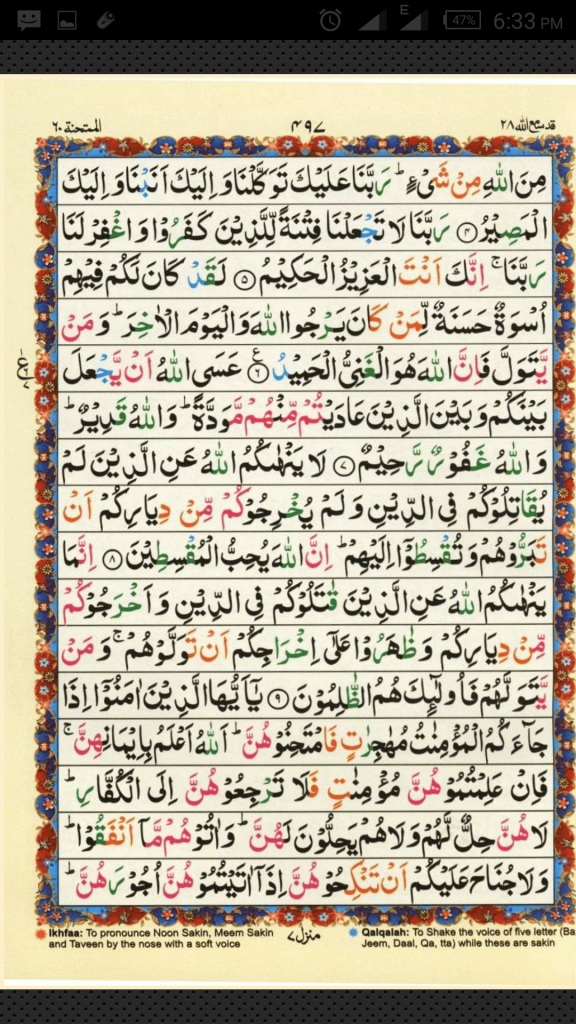 E 47% 6:33 PM
الممتحنة ٦٠ ٤٩٧ قد سمع الله ٢٨
مِنَ اللّٰهِ مِنْ شَیْءٍ ؕ رَبَّنَا عَلَیْكَ تَوَكَّلْنَا وَ اِلَیْكَ اَنَبْنَا وَ اِلَیْكَ
الْمَصِیْرُ ۝۴ رَبَّنَا لَا تَجْعَلْنَا فِتْنَةً لِّلَّذِیْنَ كَفَرُوْا وَ اغْفِرْ لَنَا
رَبَّنَا ۚ اِنَّكَ اَنْتَ الْعَزِیْزُ الْحَكِیْمُ ۝۵ لَقَدْ كَانَ لَكُمْ فِیْهِمْ
اُسْوَةٌ حَسَنَةٌ لِّمَنْ كَانَ یَرْجُوا اللّٰهَ وَ الْیَوْمَ الْاٰخِرَ ؕ وَ مَنْ
یَّتَوَلَّ فَاِنَّ اللّٰهَ هُوَ الْغَنِیُّ الْحَمِیْدُ ۝۶ ع عَسَی اللّٰهُ اَنْ یَّجْعَلَ
بَیْنَكُمْ وَ بَیْنَ الَّذِیْنَ عَادَیْتُمْ مِّنْهُمْ مَّوَدَّةً ؕ وَ اللّٰهُ قَدِیْرٌ ؕ
وَ اللّٰهُ غَفُوْرٌ رَّحِیْمٌ ۝۷ لَا یَنْهٰىكُمُ اللّٰهُ عَنِ الَّذِیْنَ لَمْ
یُقَاتِلُوْكُمْ فِی الدِّیْنِ وَ لَمْ یُخْرِجُوْكُمْ مِّنْ دِیَارِكُمْ اَنْ
تَبَرُّوْهُمْ وَ تُقْسِطُوْۤا اِلَیْهِمْ ؕ اِنَّ اللّٰهَ یُحِبُّ الْمُقْسِطِیْنَ ۝۸ اِنَّمَا
یَنْهٰىكُمُ اللّٰهُ عَنِ الَّذِیْنَ قٰتَلُوْكُمْ فِی الدِّیْنِ وَ اَخْرَجُوْكُمْ
مِّنْ دِیَارِكُمْ وَ ظٰهَرُوْا عَلٰۤی اِخْرَاجِكُمْ اَنْ تَوَلَّوْهُمْ ۚ وَ مَنْ
یَّتَوَلَّهُمْ فَاُولٰٓىِٕكَ هُمُ الظّٰلِمُوْنَ ۝۹ یٰۤاَیُّهَا الَّذِیْنَ اٰمَنُوْۤا اِذَا
جَآءَكُمُ الْمُؤْمِنٰتُ مُهٰجِرٰتٍ فَامْتَحِنُوْهُنَّ ؕ اَللّٰهُ اَعْلَمُ بِاِیْمَانِهِنَّ ۚ
فَاِنْ عَلِمْتُمُوْهُنَّ مُؤْمِنٰتٍ فَلَا تَرْجِعُوْهُنَّ اِلَی الْكُفَّارِ ؕ
لَا هُنَّ حِلٌّ لَّهُمْ وَ لَا هُمْ یَحِلُّوْنَ لَهُنَّ ؕ وَ اٰتُوْهُمْ مَّاۤ اَنْفَقُوْا ؕ
وَ لَا جُنَاحَ عَلَیْكُمْ اَنْ تَنْكِحُوْهُنَّ اِذَاۤ اٰتَیْتُمُوْهُنَّ اُجُوْرَهُنَّ ؕ
منزل ٧
Ikhfaa: To pronounce Noon Sakin, Meem Sakin
and Taveen by the nose with a soft voice
Qalqalah: To Shake the voice of five letter (Ba
Jeem, Daal, Qa, tta) while these are sakin